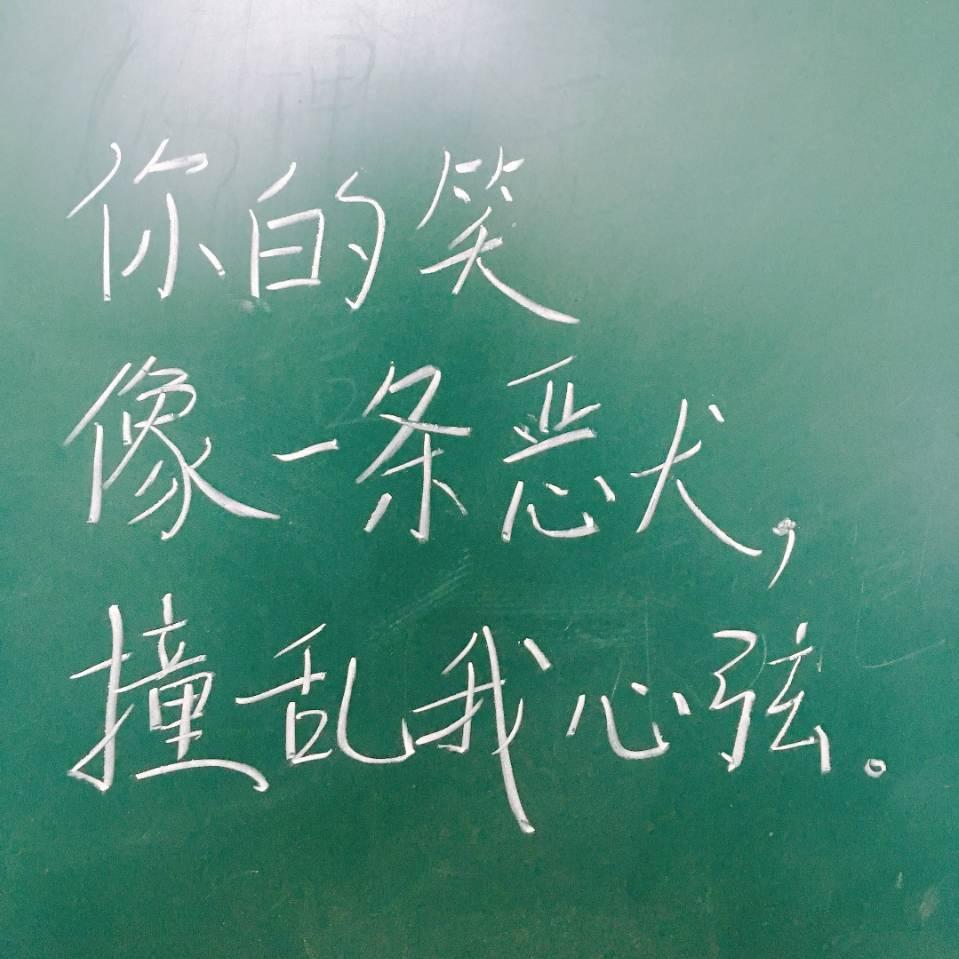 你的笑
像一条恶犬，
撞乱我心弦。